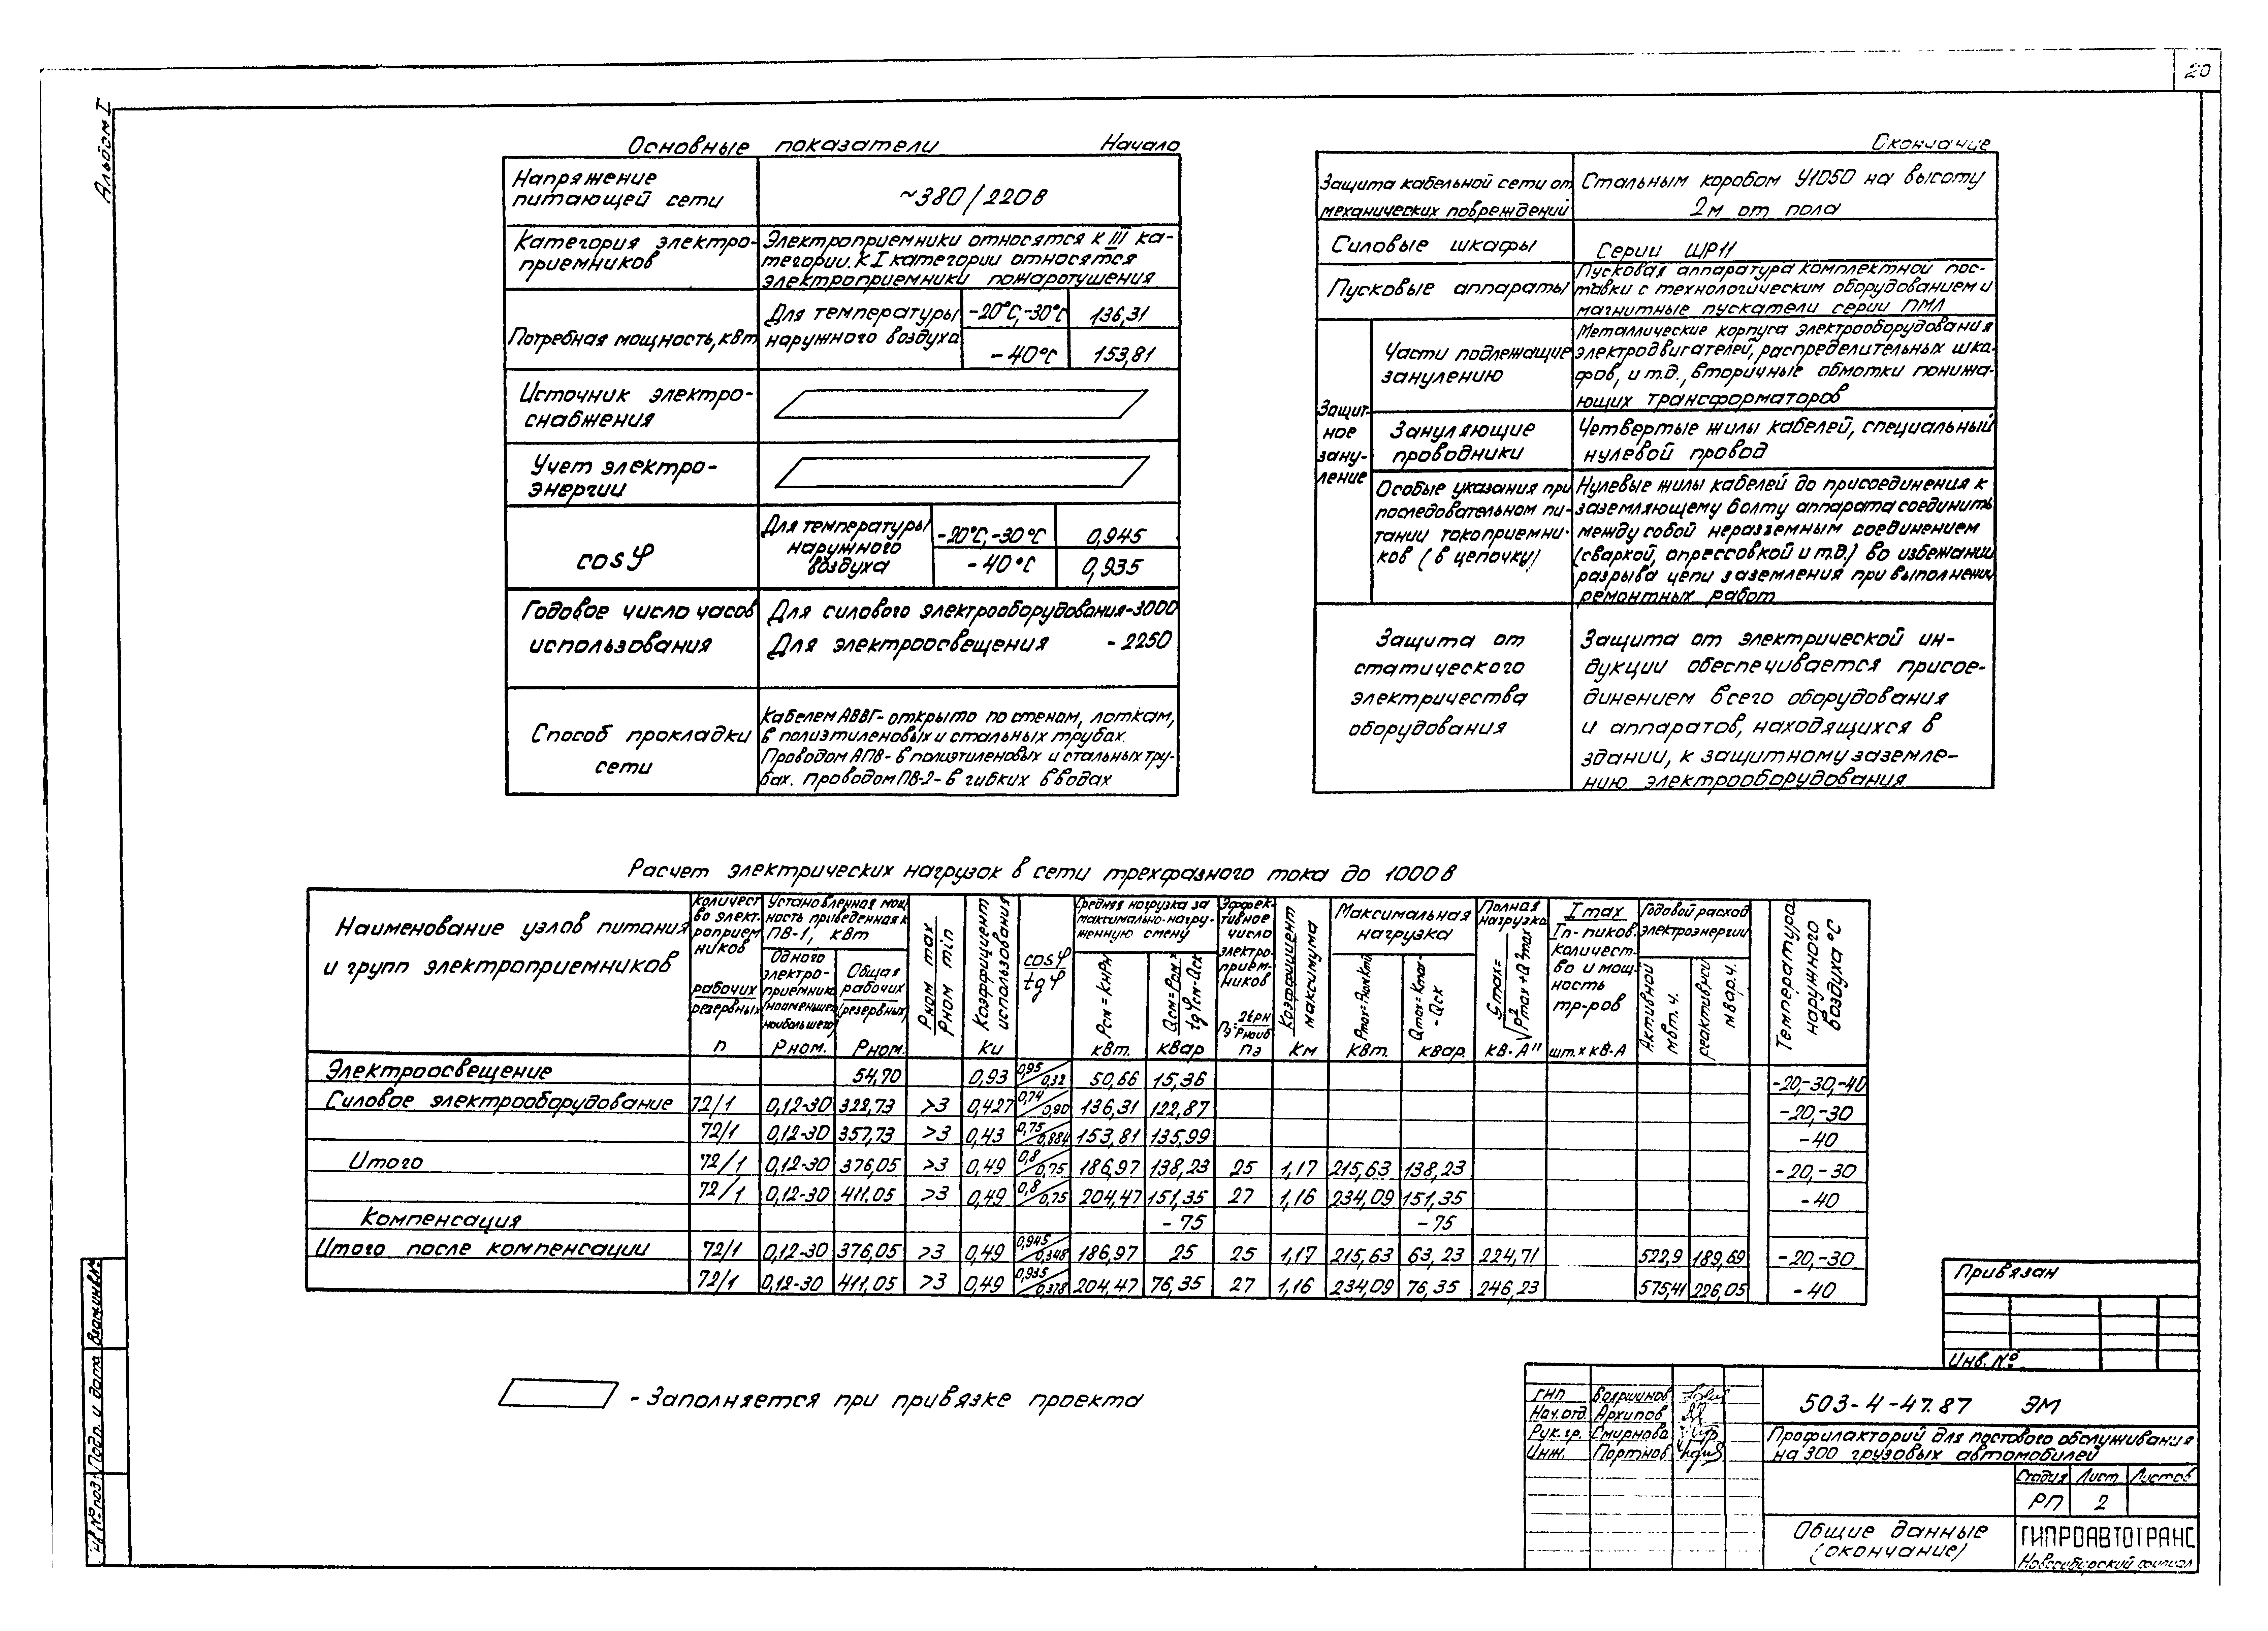 20
Альбом I
Основные показатели Начало
Напряжение питающей сети ~380/220в
Категория электро-
приемников
Электроприемники относятся к III ка-
тегории. К I категории относятся
электроприемники пожаротушения
Потребная мощность, квт
Для температуры
наружного воздуха
-20°С,-30°С 136,31
-40°С 153,81
Источник электро-
снабжения
Учет электро-
энергии
cosφ
Для температуры
наружного
воздуха
-20°С,-30°С 0,945
-40°С 0,935
Годовое число часов
использования
Для силового электрооборудования-3000
Для электроосвещения -2250
Способ прокладки
сети
Кабелем АВВГ-открыто по стенам, лоткам,
в полиэтиленовых и стальных трубах.
Проводом АПВ-в полиэтиленовых и стальных тру-
бах. Проводом ПВ-2-в гибких вводах
Окончание
Защита кабельной сети от
механических повреждений
Стальным коробом У1050 на высоту
2м от пола
Силовые шкафы Серии ШР11
Пусковые аппараты
Пусковая аппаратура комплектной пос-
тавки с технологическим оборудованием и
магнитные пускатели серии ПМЛ
Защит-
ное
зану-
ление
Части подлежащие
занулению
Металлические корпуса электрооборудования
электродвигателей, распределительных шка-
фов, и т.д., вторичные обмотки понижа-
ющих трансформаторов
Зануляющие
проводники
Четвертые жилы кабелей, специальный
нулевой провод
Особые указания при
последовательном пи-
тании токоприемни-
ков (в цепочку)
Нулевые жилы кабелей до присоединения к
заземляющему болту аппарата соединить
между собой неразъемным соединением
(сваркой, опрессовкой и т.д.) во избежании
разрыва цепи заземления при выполнении
ремонтных работ
Защита от
статического
электричества
оборудования
Защита от электрической ин-
дукции обеспечивается присое-
динением всего оборудования
и аппаратов, находящихся в
здании, к защитному заземле-
нию электрооборудования
Расчет электрических нагрузок в сети трехфазного тока до 1000в
Наименование узлов питания
и групп электроприемников
Количест
во элект-
роприем
ников
рабочих
резервных
n
Установленная мощ
ность приведенная к
ПВ-1, квт
Одного
электро-
приемника
(наименьшего
наибольшего)
Рном.
Общая
рабочих
(резервных)
Рном.
Рном max
Рном min
Коэффициент
использования
Ки
cosφ
tgφ
Средняя нагрузка за
максимально-нагру-
женную смену
Рсм = КиРн
квт.
Qсм=Рсм×
tgφсм-Qск
квар
Эффек-
тивное
число
электро-
прием-
ников
nэ=2ΣРн/Рнаиб
nэ
Коэффициент
максимума
Км
Максимальная
нагрузка
квт.
- Qск
квар.
Полная
нагрузка
Smax=
√P²max+Q²max
кв-А"
I max
Iп-пиков.
Количест-
во и мощ-
ность
тр-ров
шт.х кв-А
Годовой расход
электроэнергии
Активной
мвт. ч.
реактивной
мвар.ч.
Температура
наружного
воздуха °С
Электроосвещение 54,70 0,93 0,95/0,32 50,66 15,36 -20,-30,-40
Силовое электрооборудование 72/1 0,12-30 322,73 >3 0,427 0,74/0,90 136,31 122,87 -20,-30
72/1 0,12-30 357,73 >3 0,43 0,75/0,884 153,81 135,99 -40
Итого 72/1 0,12-30 376,05 >3 0,49 0,8/0,75 186,97 138,23 25 1,17 215,63 138,23 -20,-30
72/1 0,12-30 411,05 >3 0,49 0,8/0,75 204,47 151,35 27 1,16 234,09 151,35 -40
Компенсация -75 -75
Итого после компенсации 72/1 0,12-30 376,05 >3 0,49 0,945/0,348 186,97 25 25 1,17 215,63 63,23 224,71 522,9 189,69 -20,-30
72/1 0,12-30 411,05 >3 0,49 0,935/0,378 204,47 76,35 27 1,16 234,09 76,35 246,23 575,41 226,05 -40
- Заполняется при привязке проекта
Привязан
Инв. №
ГИП Вояршинов
Нач.отд. Архипов
Рук.гр. Смирнова
Инж. Портнов
503-4-47.87 ЭМ
Профилакторий для постового обслуживания
на 300 грузовых автомобилей
Стадия Лист Листов
РП 2
Общие данные
(окончание)
ГИПРОАВТОТРАНС
Новосибирский филиал
Взам.инв.№
Подп. и дата